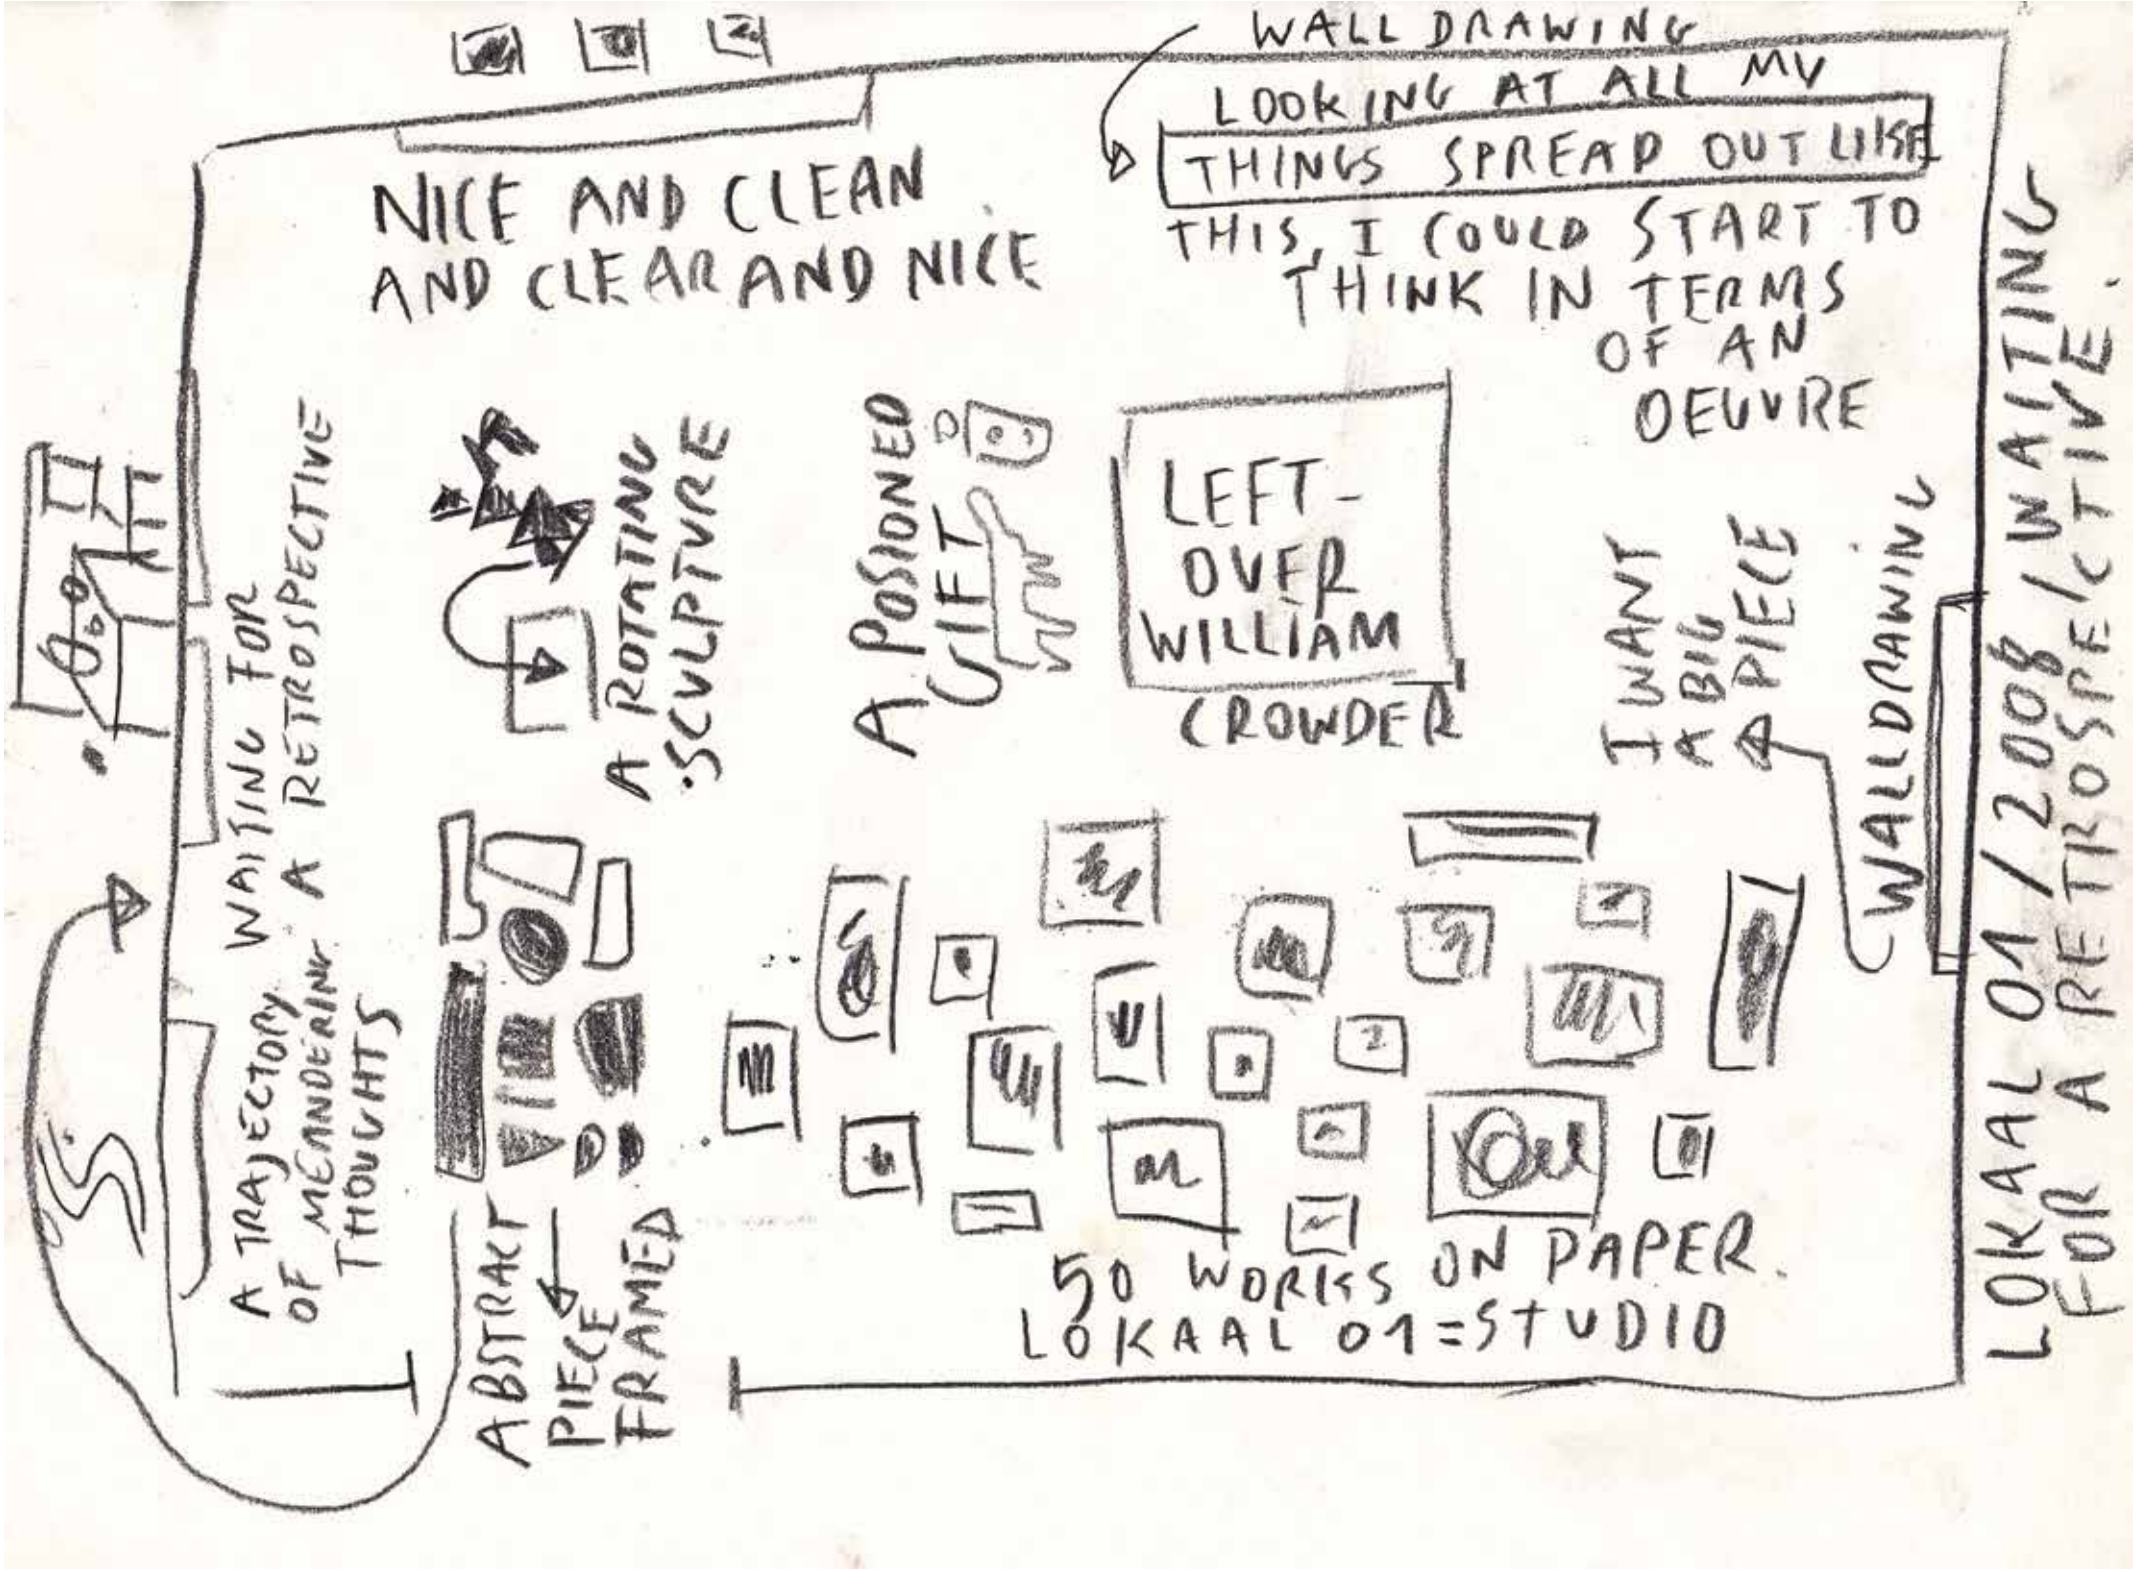 WALL DRAWING
LOOKING AT ALL MY
THINGS SPREAD OUT LIKE
THIS, I COULD START TO
THINK IN TERMS
OF AN
OEUVRE
NICE AND CLEAN
AND CLEAR AND NICE
WAITING FOR
A RETROSPECTIVE
A TRAJECTORY
OF MEANDERING
THOUGHTS
A ROTATING
SCULPTURE
A POSIONED
GIFT
LEFT-
OVER
WILLIAM
CROWDER
I WANT
A BIG
PIECE
WALLDRAWING
ABSTRACT
PIECE
FRAMED
50 WORKS ON PAPER.
LOKAAL 01=STUDIO
LOKAAL 01/2008/WAITING
FOR A RETROSPECTIVE.